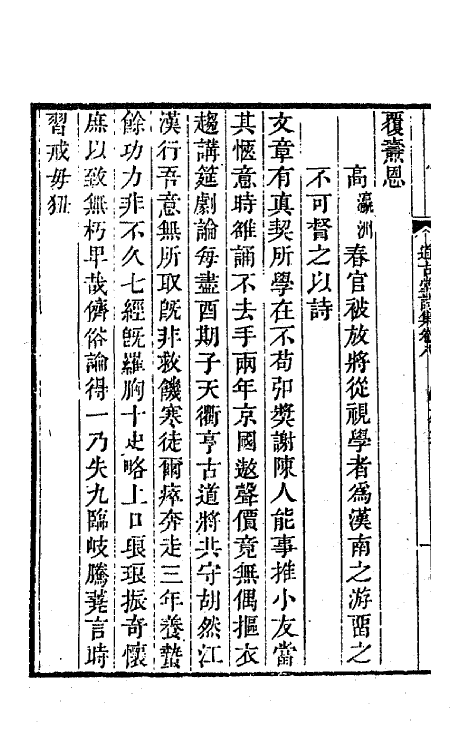 覆燾恩
高瀛洲春官被放將從視學者爲漢南之游畱之
不可督之以詩
文章有真契所學在不苟卯獎謝陳人能事推小友當
其愜意時雒誦不去手兩年京國遨聲價竟無偶摳衣
趨講筵劇論每盡酉期子天衢亨古道將共守胡然江
漢行吾意無所取旣非救饑寒徒爾瘁奔走三年養蟄
餘功力非不久七經旣羅胸十史略上口琅琅振奇懷
庶以致無朽卑哉儕俗論得一乃失九臨岐騰蕘言時
習戒毋狃
道古堂詩集卷